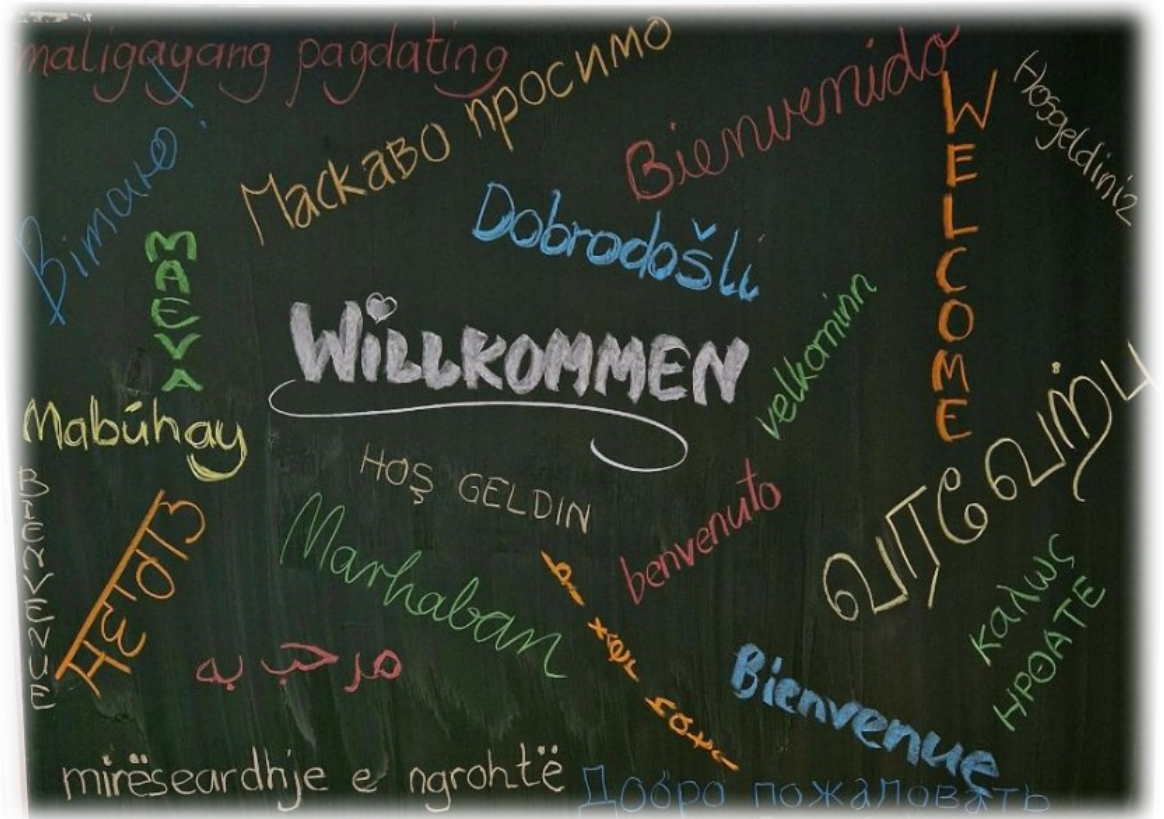 maligayang pagdating
Маскаво просимо
Bienvenido
WELCOME
Hosgeldiniz
Вітаю!
MAEVA
Dobrodošli
WiLLKOMMEN
velkominn
Mabúhay
HOŞ GELDIN
வரவேற்பு
BIENVENUE
Marhaban
benvenuto
καλως
ΗΡΘΑΤΕ
مرحب به
Bienvenue
mirëseardhje e ngrohtë
Добро пожаловать